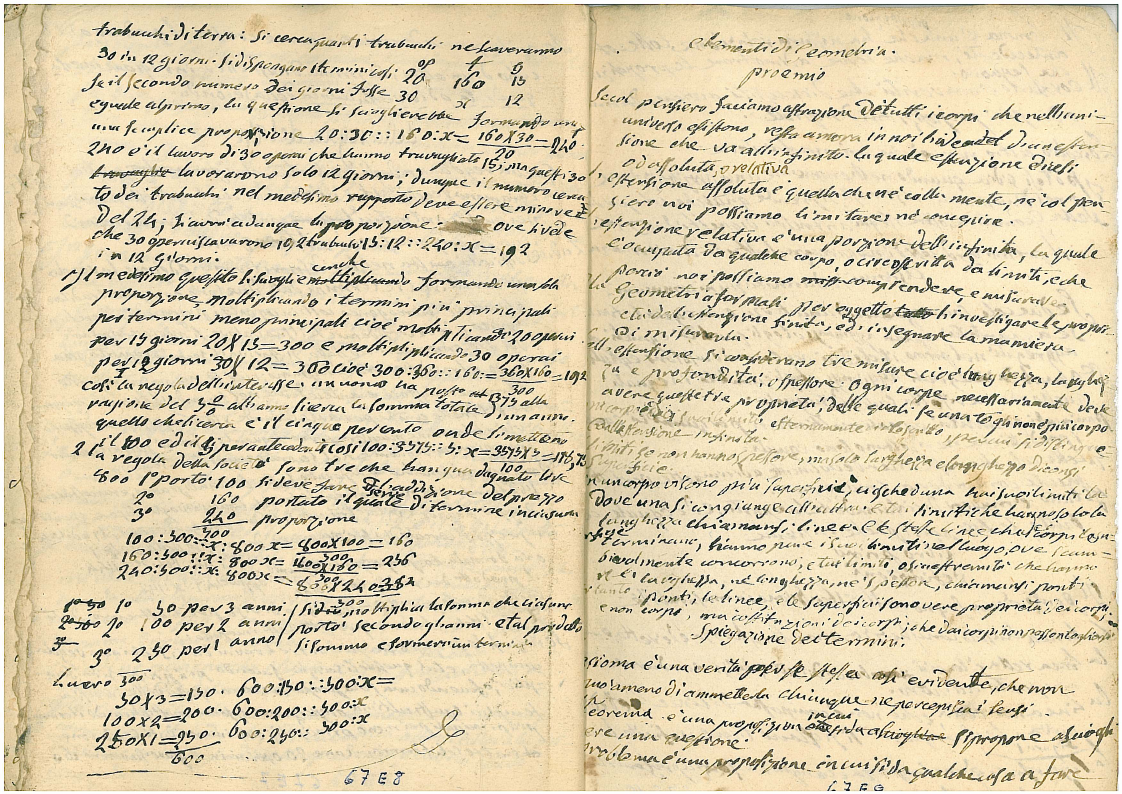 trabucchi di terra: si cerca quanti trabucchi ne scaveranno
30 in 12 giorni. si dispongano i termini così op t g
20 160 15
se il secondo numero dei giorni fosse 30 x 12
eguale al primo, la questione si scioglierebbe formando una
una semplice proporzione 20:30::160:x= 160X30 =240
20
240 è il lavoro di 30 operai che hanno travagliato 15; ma questi 30
lavorarono solo 12 giorni; dunque il numero cerca
to dei trabuchi nel medesimo rapporto deve essere minore
del 24; si avrà adunque la proporzione ove si vede
che 30 operai scavarono 192 trabuchi 15:12::240:x=192
in 12 giorni.
Il medesimo quesito si scioglie anche formando una sola
proporzione, moltiplicando i termini più principali
pei termini meno principali cioè moltiplicando 20 operai
per 15 giorni 20X15=300 e moltiplicando 30 operai
per 12 giorni 30X12=360 cioè 300:360::160:= 360X160 =192
300
così la regola dell'interesse. un uomo ha posto 3575 alla
ragione del 5 0/0 all'anno si cerca la somma totale d'un anno
quello che si cerca è il cinque per cento onde si mettono
il 100 ed il 5 per antecedenti così 100:3575::5:x= 3575X5 =
100
2 la regola della società sono tre che han guadagnato lire
800 1° portò 100 si deve fare l'addizione del prezzo
2° 160 portato il quale serve di termine in ciascuna
3° 240 proporzione
500
100:500::x:800x= 800X100 =160
500
160:500::x:800x= 800X160 =256
500
240:500::x:800x= 800X240 384
1° 50 per 3 anni si moltiplica la somma che ciascuno
2° 100 per 2 anni portò secondo gli anni e tal prodotto
3° 250 per 1 anno si sommi e formerà un termine
lucro 500
50X3=150. 600:150::500:x=
100X2=200. 600:200::500:x
250X1=250. 600:250:: 500:x
600
67 E 8
Elementi di Geometria.
proemio
Se col pensiero facciamo astrazione di tutti i corpi che nell'uni-
universo esistono, resta ancora in noi l'idea d'una esten
sione che va all'infinito. la quale estenzione dicesi
od assoluta, o relativa.
estensione assoluta è quella che nè colla mente, nè col pen
siero noi possiamo limitare nè concepire.
l'estensione relativa è una porzione dell'infinita, la quale
è occupata da qualche corpo, o circoscritta da limiti, e che
perciò noi possiamo comprendere, e misurare
la Geometria per oggetto d'investigare le propri
età dell'estensione finita, ed insegnare la maniera
di misurarla.
estensione si considerano tre misure cioè lunghezza, larghez
za e profondità, o spessore. ogni corpo necessariamente deve
avere queste tre proprietà, delle quali se una togli non è più corpo
estensione infinita.
limiti se non hanno spessore, ma solo larghezza e lunghezza diconsi
superficie.
in un corpo vi sono più superficie, ciascheduna ha i suoi limiti là
dove una si congiunge all'altra: e tai limiti che hanno sola
lunghezza chiamansi linee: e le stesse linee, che da corpi
terminano, hanno pure i suoi limiti nel luogo, ove scam-
bievolmente concorrono, e tai limiti, ossia estremità che hanno
nè larghezza, nè lunghezza, nè spessore, chiamansi ponti
i ponti, le linee, e le superfici sono vere proprietà dei corpi,
e non corpo, ma costituzioni dei corpi, che dai corpi non possono togliersi
Spiegazione dei termini.
assioma è una verità per se stessa così evidente, che non
può a meno di ammetterla chiunque ne percepisca i sensi.
Teorema è una proposizione in cui si propone a sciogli
ere una questione.
problema è una proposizione in cui si dà qualche cosa a fare
67 E 9